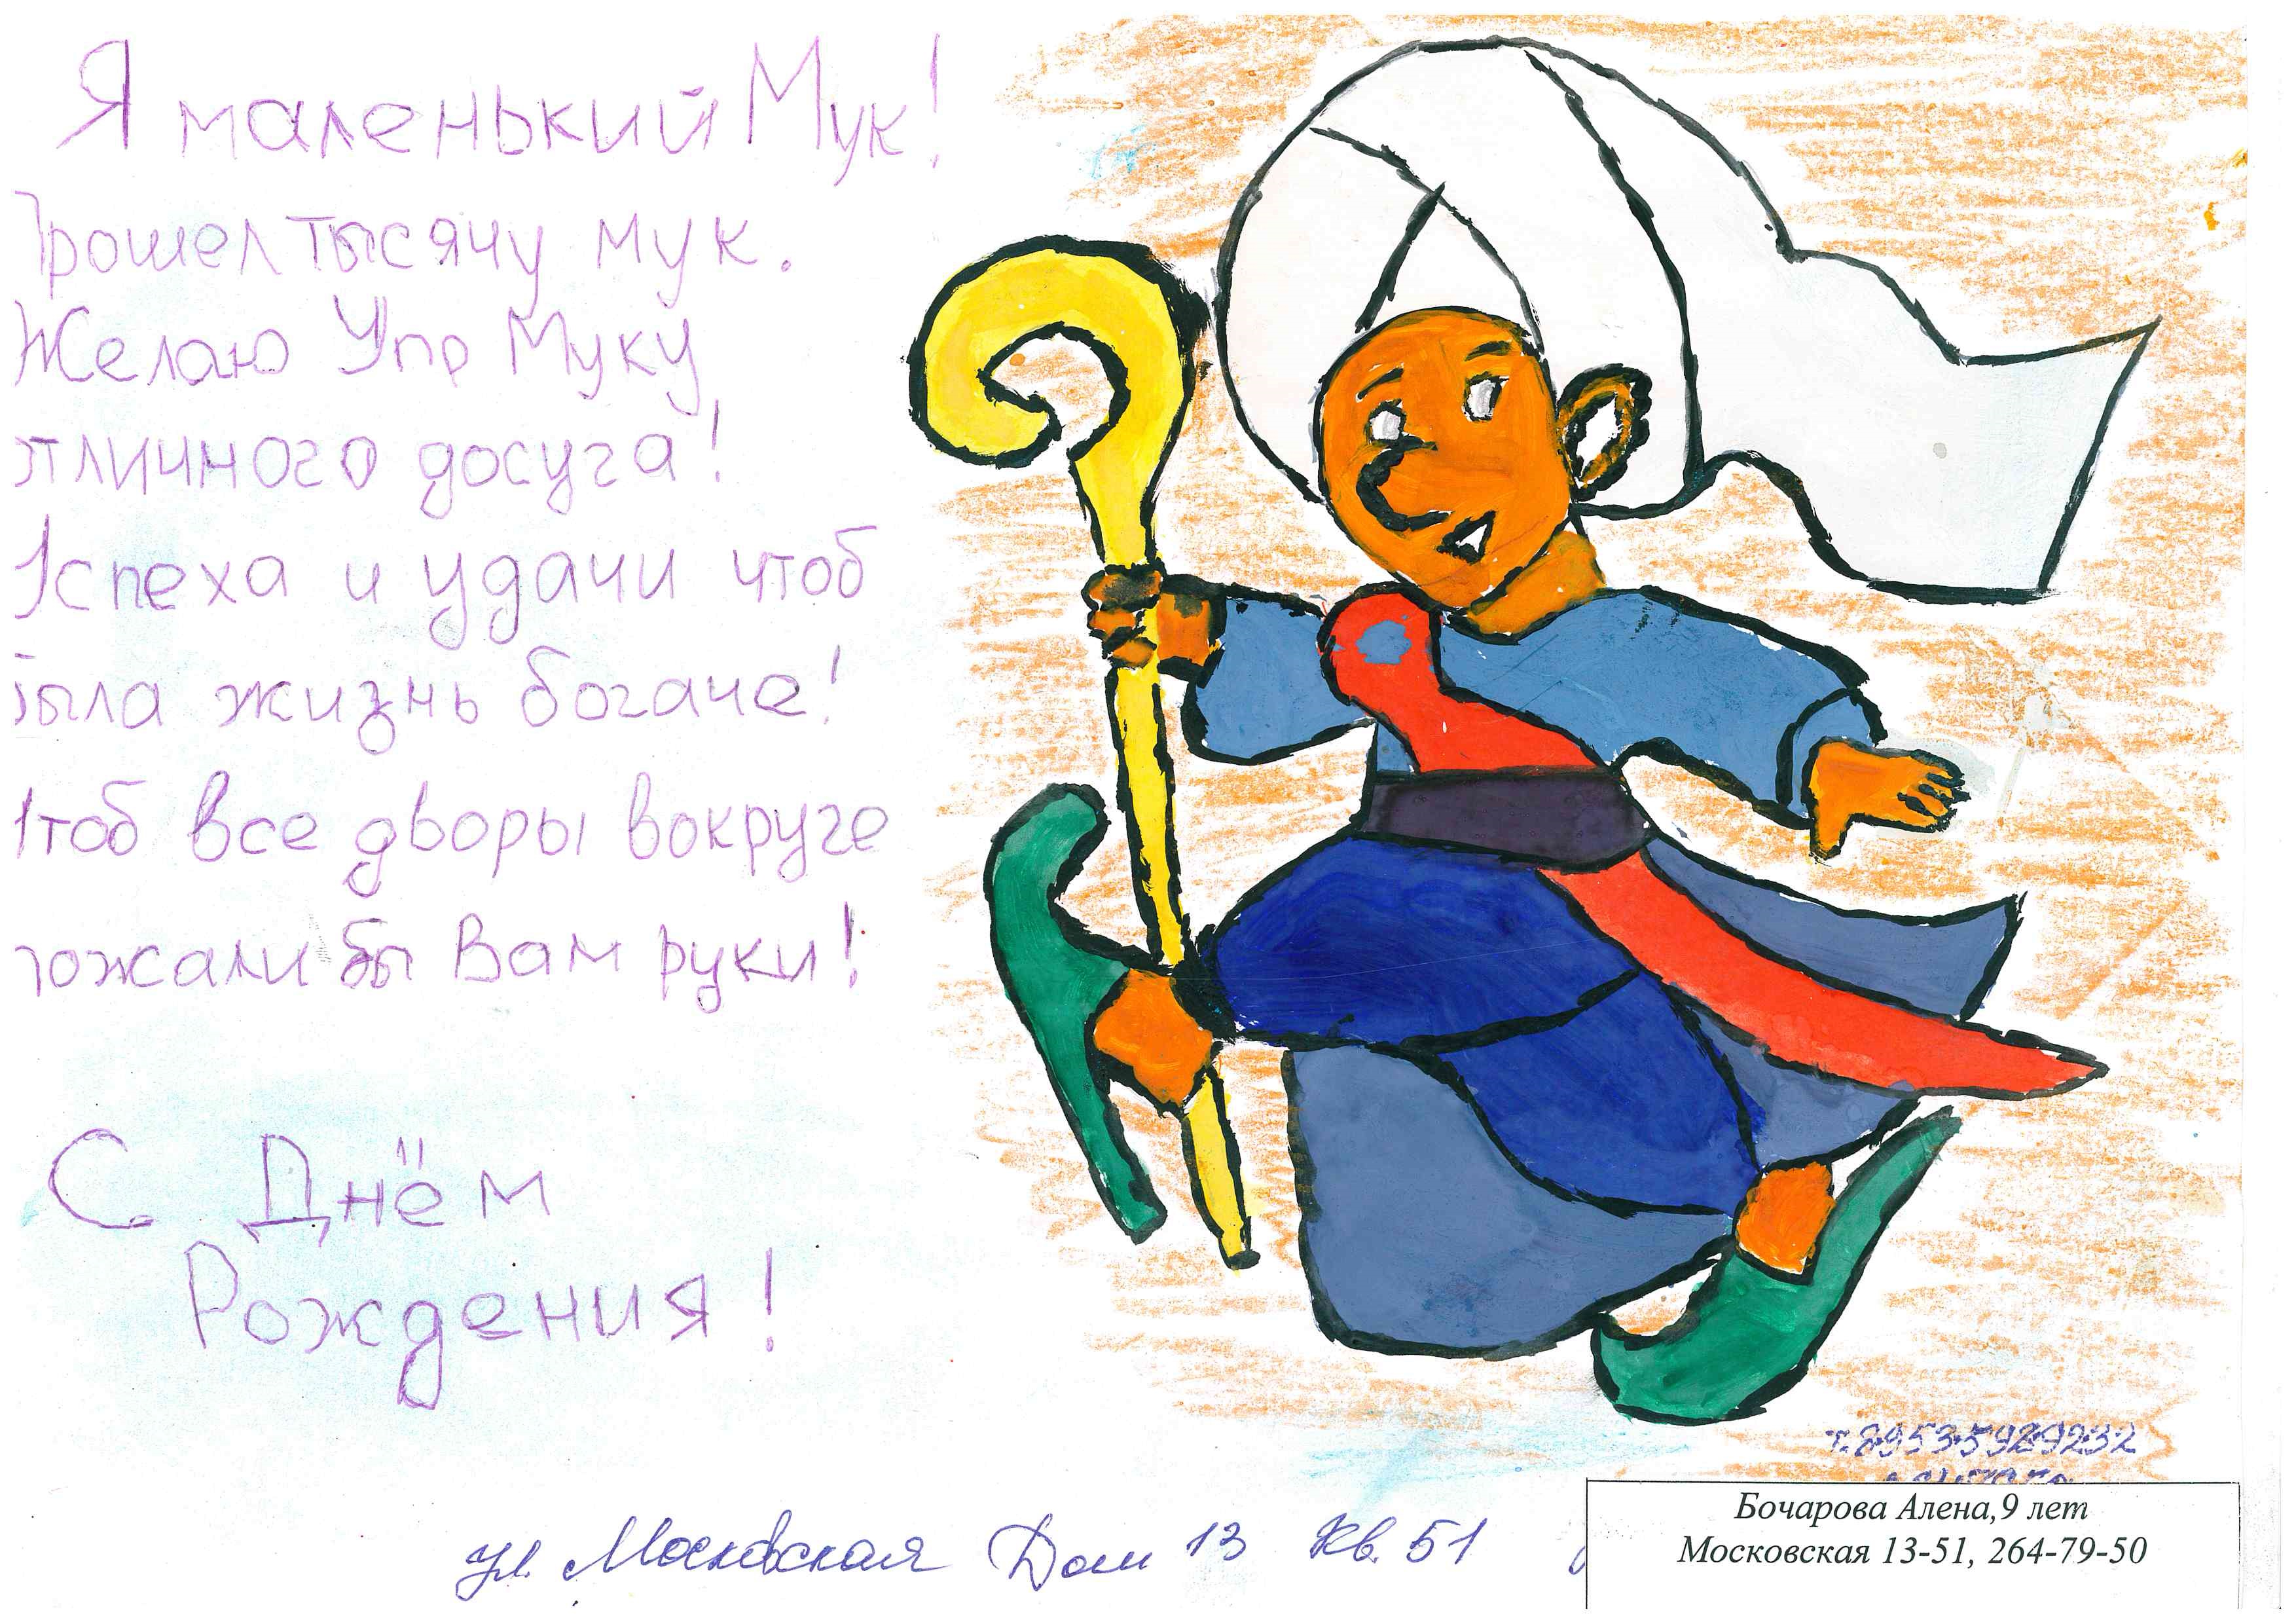 Я маленький Мук!
Прошел тысячу мук.
Желаю Упр Муку
отличного досуга!
Успеха и удачи чтоб
была жизнь богаче!
Чтоб все дворы вокруге
пожали бы Вам руки!
С Днём
Рождения!
т. 89535989232
Бочарова Алена,9 лет
Московская 13-51, 264-79-50
ул. Московская Дом 13 Кв. 51